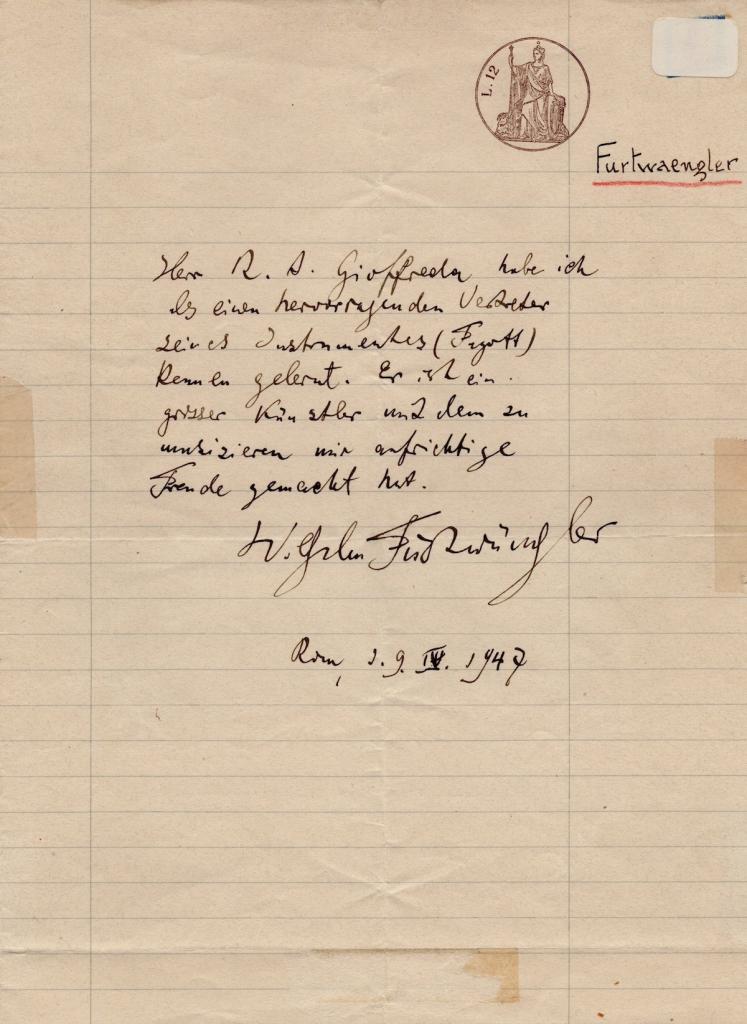 L. 12
Furtwaengler
Herr R. A. Gioffreda habe ich
als einen hervorragenden Vertreter
seines Instrumentes (Fagott)
kennen gelernt. Er ist ein
grosser Künstler mit dem zu
musizieren mir aufrichtige
Freude gemacht hat.
Wilhelm Furtwängler
Rom, 19. IV. 1947